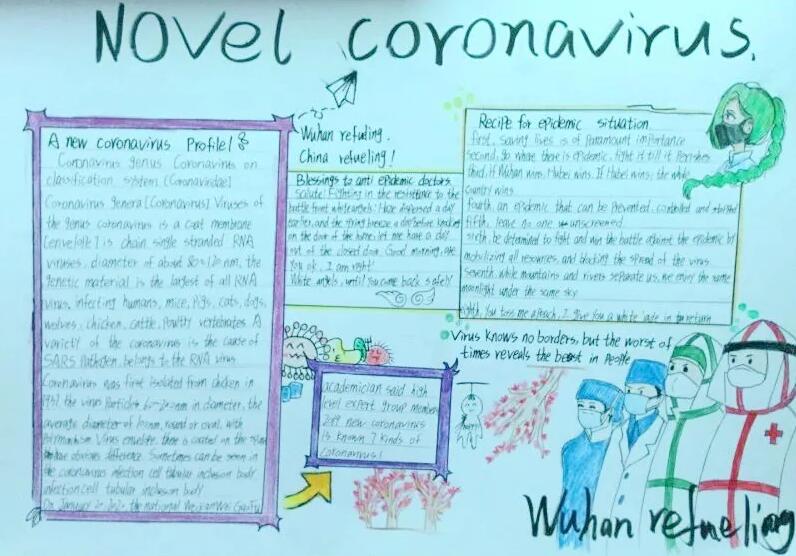 Novel coronavirus.
A new coronavirus Profile!
Coronavirus genus Coronavirus on
classification system. [Coronaviridae]
Coronavirus genera [Coronavirus] Viruses of
the genus coronavirus is a coat membrane
[envelope] is chain single stranded RNA
viruses, diameter of about 80~120nm, the
genetic material is the largest of all RNA
virus, infecting humans, mice, pigs, cats, dogs,
wolves, chicken, cattle, Poultry vertebrates. A
variety of the coronavirus is the cause of
SARS Pathogen, belongs to the RNA virus
Coronavirus was first isolated from chicken in
1937, the virus Particles 60~200nm in diameter, the
average diameter of nm, round or oval, with
Virus envelope, there is coated on the
have obvious difference. Sometimes can be seen in
the coronavirus infection cell tubular inclusion body
infection cell tubular inclusion body
On January 2, 2020, the national
Wuhan refuling.
China refueling!
Blessings to anti epidemic doctors
salute! Fighting in the resistance to the
battle front white angels! Haze dispersed a day
earlier, and the spring breeze a day before knocking
on the door of the home; let me have a day
out of the closed door. Good morning, are
You ok, I am right!
White angels, until you come back safely
Recipe for epidemic situation
first, Saving lives is of Paramount importance
second, So where there is epidemic, fight it till it Perishes
third, if Wuhan wins, Hubei wins. If Hubei wins; the whole
country wins
fourth, an epidemic that can be Prevented, controlled and
fifth, leave no one unscreened
sixth, be determined to fight and win the battle against the epidemic by
mobilizing all resources, and blocking the spread of the virus
seventh, while mountains and rivers separate us, we enjoy the same
moonlight under the same sky
eight, You toss me a Peach, I give you a white jade in return
Virus knows no borders, but the worst of
times reveals the best in People
academician said high
level expert group members
2019 new coronavirus
is known 7 kinds of
coronavirus!
Wuhan refueling